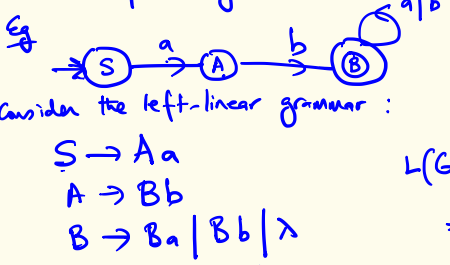 Eg
S a A b B a|b
Consider the left-linear grammar :
S → Aa
L(G
A → Bb
B → Ba | Bb | λ